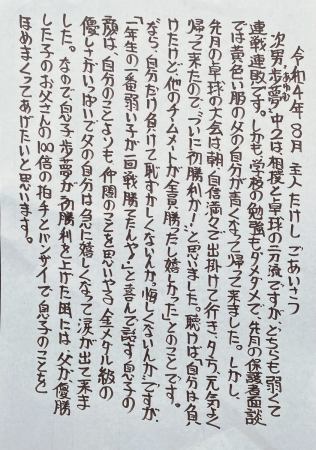 令和4年8月 主人たけし ごあいさつ
次男歩夢中2は相撲と卓球の二流ですがどちらも弱くて
あゆむ
連戦連敗です。しかも学校の勉強もダメダメで、先月の保護者面談
では黄色い服の父の自分が青くなって帰って来ました。しかし、
先月の卓球の大会は朝、自信満々に出掛けて行き、夕方、元気よく
帰って来たので、ついに初勝利か!と思いました。聴けば「自分は負
けたけど他のチームメートが全員勝ったし嬉しかった」とのことです。
なら、自分だけ負けて恥ずかしくないんか。悔しくないんか。ですが、
「一年生の一番弱い子が一回戦勝てたんや!」と喜んで話す息子の
顔は、自分のことよりも仲間のことを思いやる金メダル級の
優しさがいっぱいで父の自分は急に嬉しくなって涙が出て来ま
した。なので息子歩夢が初勝利を上げた囲には父が、優勝
した子のお父さんの100倍の拍手とバンザイで息子のことを
ほめまくってあげたいと思います。